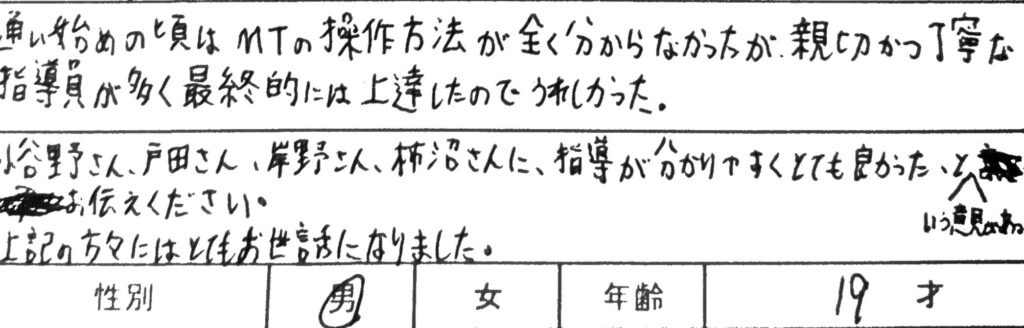 通い始めの頃はMTの操作方法が全く分からなかったが、親切かつ丁寧な
指導員が多く最終的には上達したのでうれしかった。
谷野さん、戸田さん、岸野さん、柿沼さんに、指導が分かりやすくとても良かった、と
いう意見
お伝えください。
上記の方々にはとてもお世話になりました。
性別 男 女 年齢 19 才